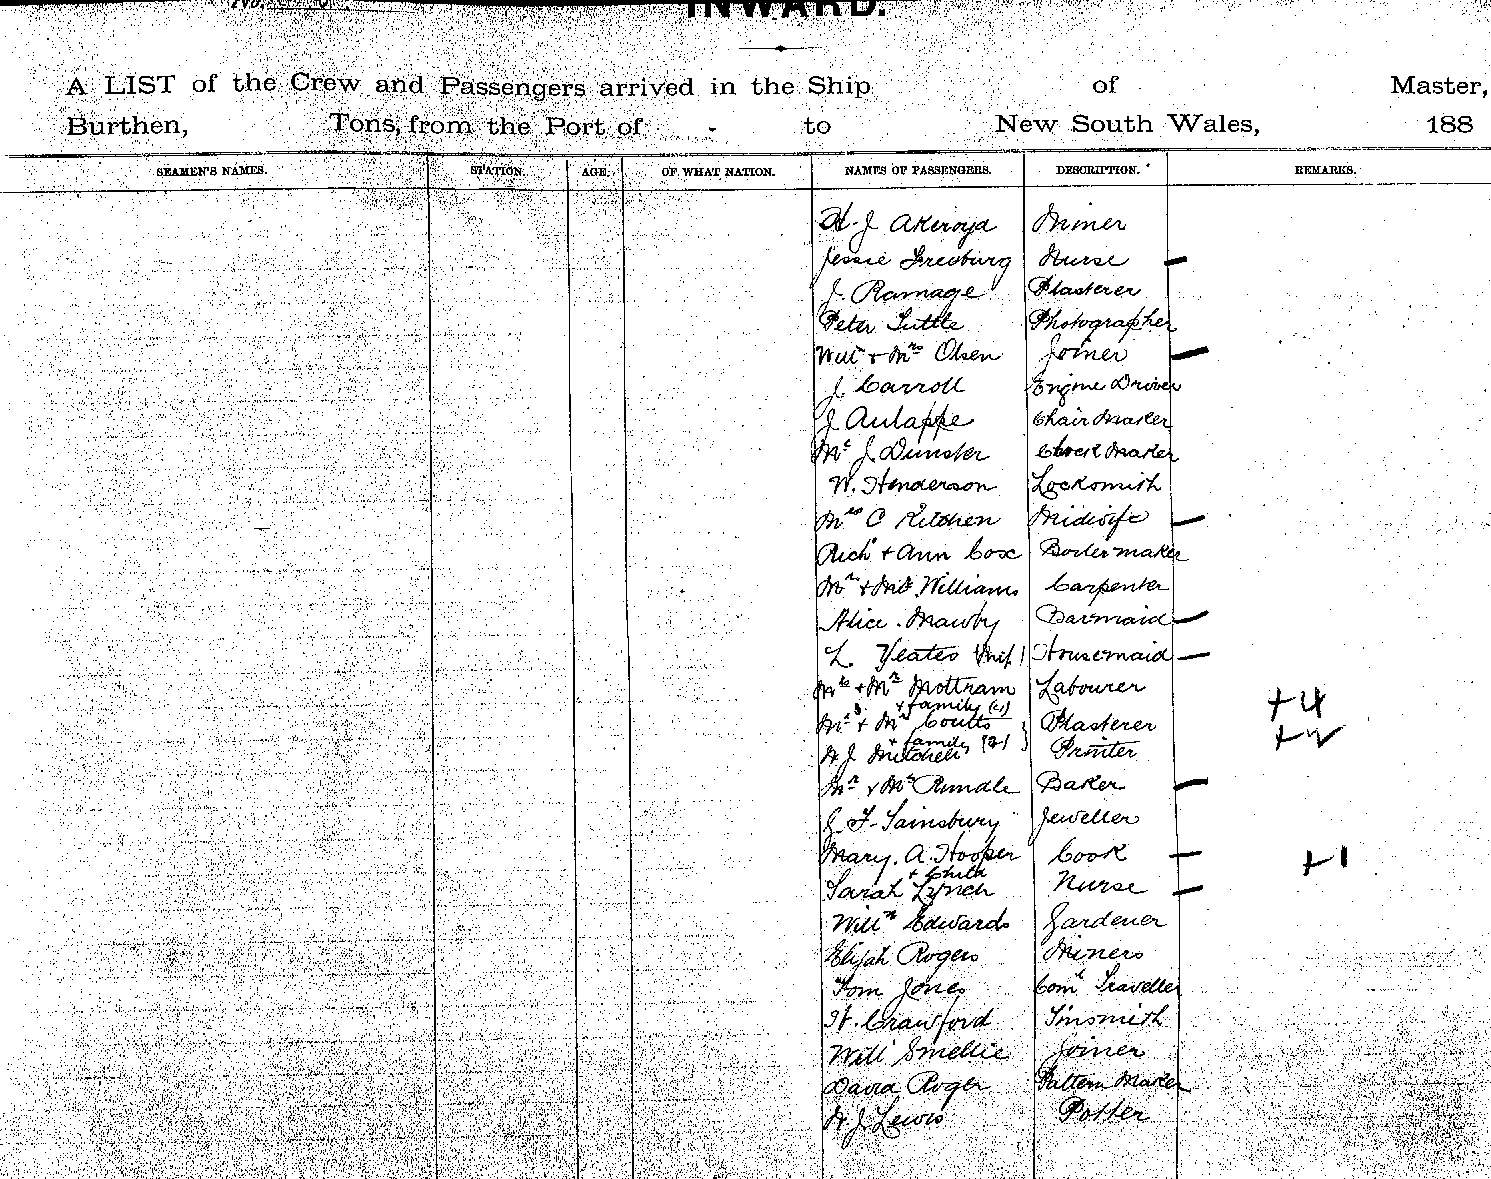 No.
INWARD.
A LIST of the Crew and Passengers arrived in the Ship of Master,
Burthen, Tons, from the Port of - to New South Wales, 188
SEAMEN'S NAMES. STATION. AGE. OF WHAT NATION. NAMES OF PASSENGERS. DESCRIPTION. REMARKS.
H. J Akeroyd Miner
Jessie Nurse
J. Ramage Plasterer
Peter Tuttle Photographer
Will + Mrs Olsen Joiner
J Carroll Engine Driver
J Aulappe Chair Maker
J. Dunster Clock Maker
W. Henderson Locksmith
Mrs C Kitchen Midwife
Richd + Ann Cox Boilermaker
Mr + Mrs Williams Carpenter
Alice Mawby Barmaid
L. Yeates Housemaid
Mrs + Mr Mottram Labourer
+ family (4) +4
Mrs + Mr Coutts Plasterer
+ family (2) +2
H J Mitchell Printer
Mr + Mrs Rundle Baker
J. F. Sainsbury Jeweller
Mary. A. Hooper Cook +1
+ Child
Sarah Lynch Nurse
Willm Edwards Gardener
Elijah Rogers Miners
Tom Jones Coml Traveller
H. Crawford Tinsmith
Will Smellie Joiner
David Roger Pattern Maker
H J Lewis Potter